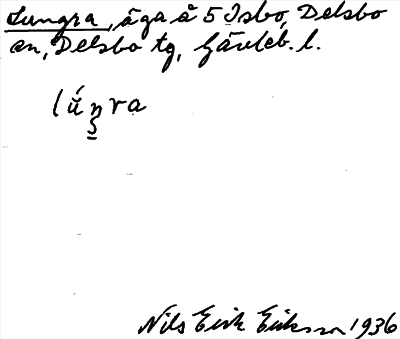 Lungra, äga å 5 Isbo, Delsbo
sn, Delsbo tg, Gävleb. l.
lúŋra
Nils Eirik Eriksson 1936